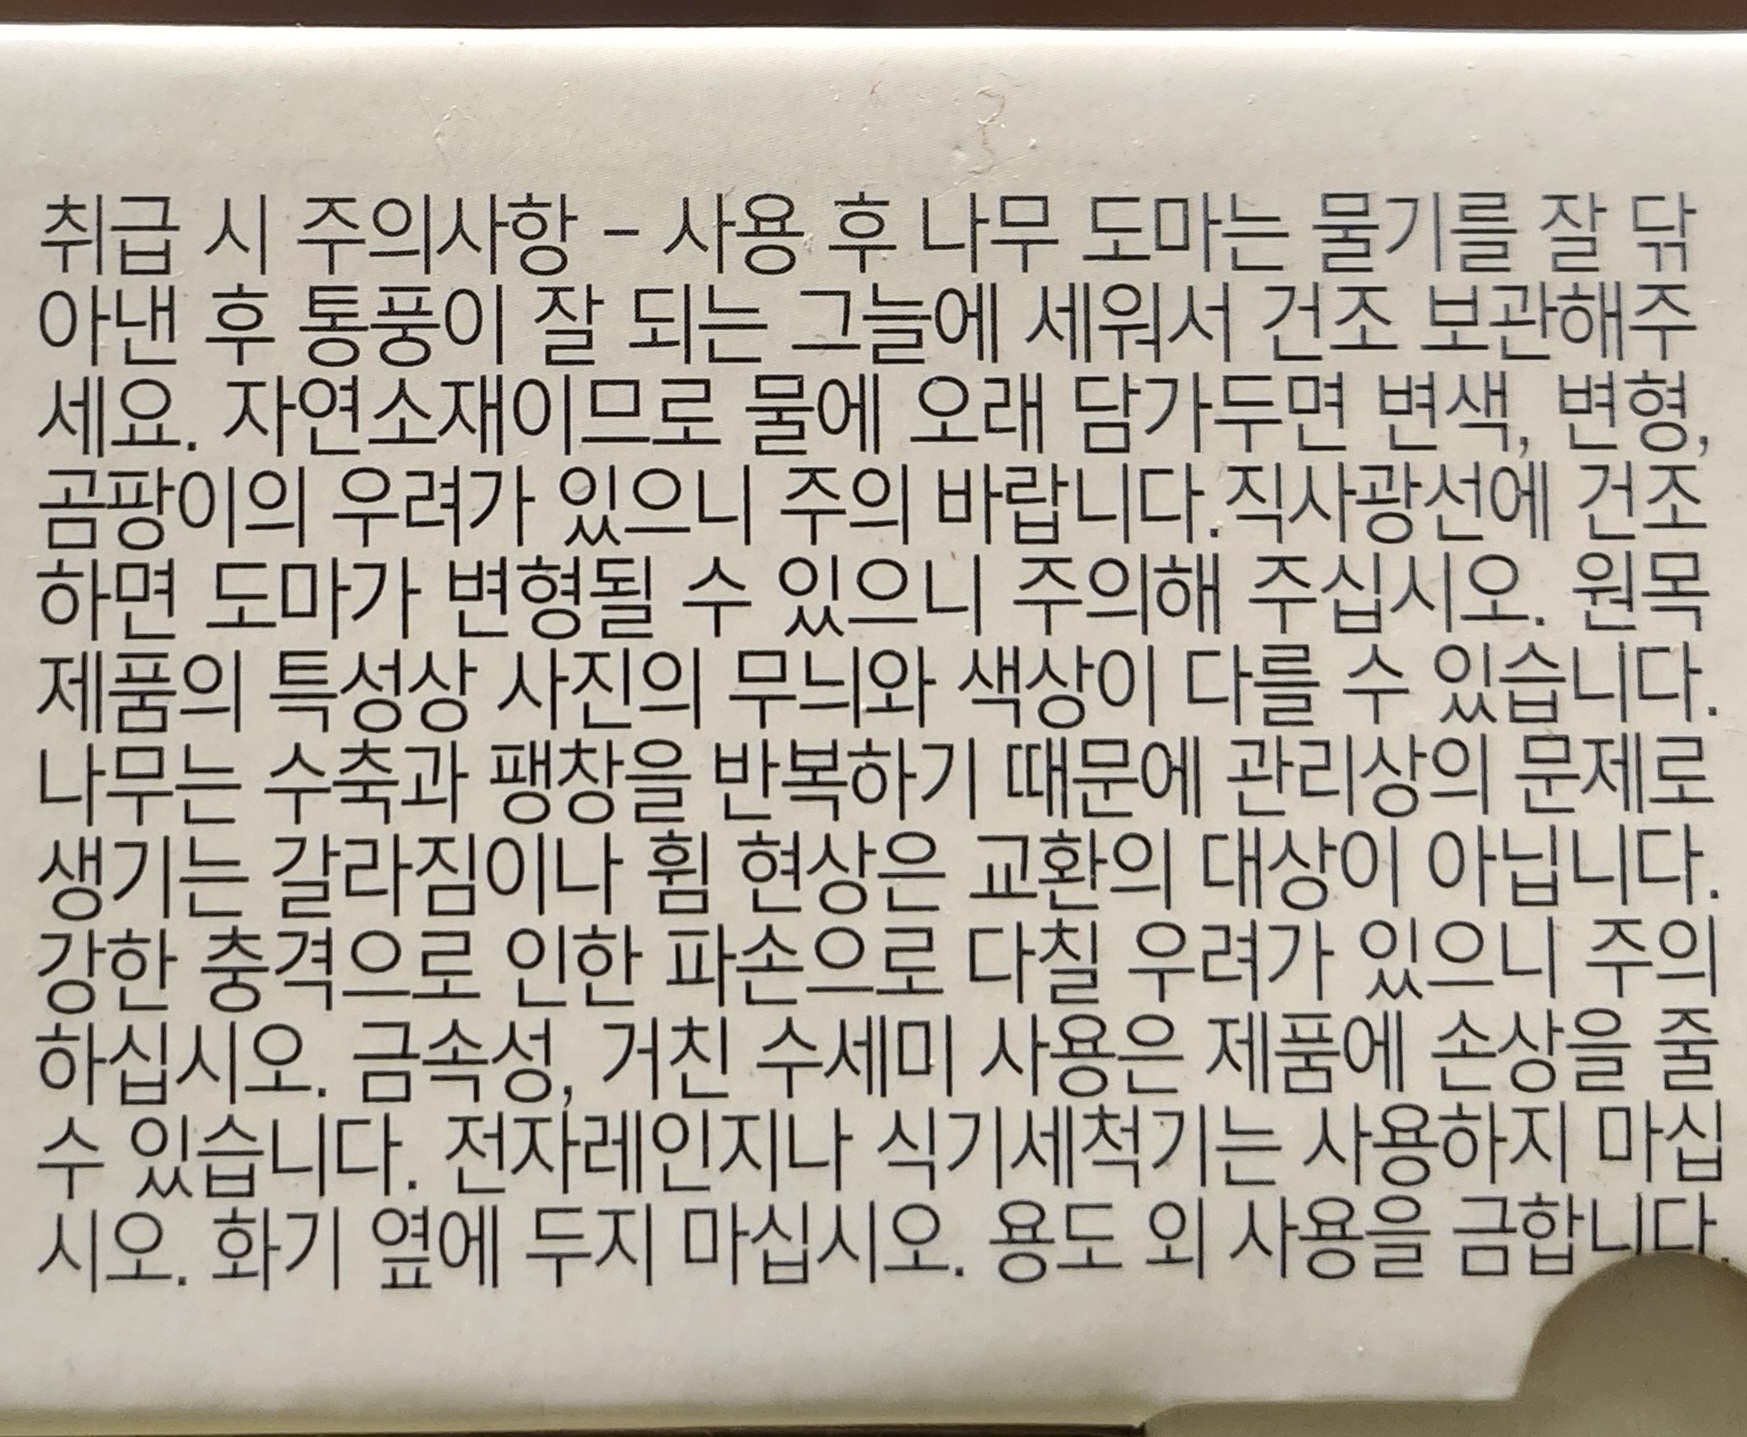 취급 시 주의사항 - 사용 후 나무 도마는 물기를 잘 닦
아낸 후 통풍이 잘 되는 그늘에 세워서 건조 보관해주
세요. 자연소재이므로 물에 오래 담가두면 변색, 변형,
곰팡이의 우려가 있으니 주의 바랍니다.직사광선에 건조
하면 도마가 변형될 수 있으니 주의해 주십시오. 원목
제품의 특성상 사진의 무늬와 색상이 다를 수 있습니다.
나무는 수축과 팽창을 반복하기 때문에 관리상의 문제로
생기는 갈라짐이나 휨 현상은 교환의 대상이 아닙니다.
강한 충격으로 인한 파손으로 다칠 우려가 있으니 주의
하십시오. 금속성, 거친 수세미 사용은 제품에 손상을 줄
수 있습니다. 전자레인지나 식기세척기는 사용하지 마십
시오. 화기 옆에 두지 마십시오. 용도 외 사용을 금합니다.